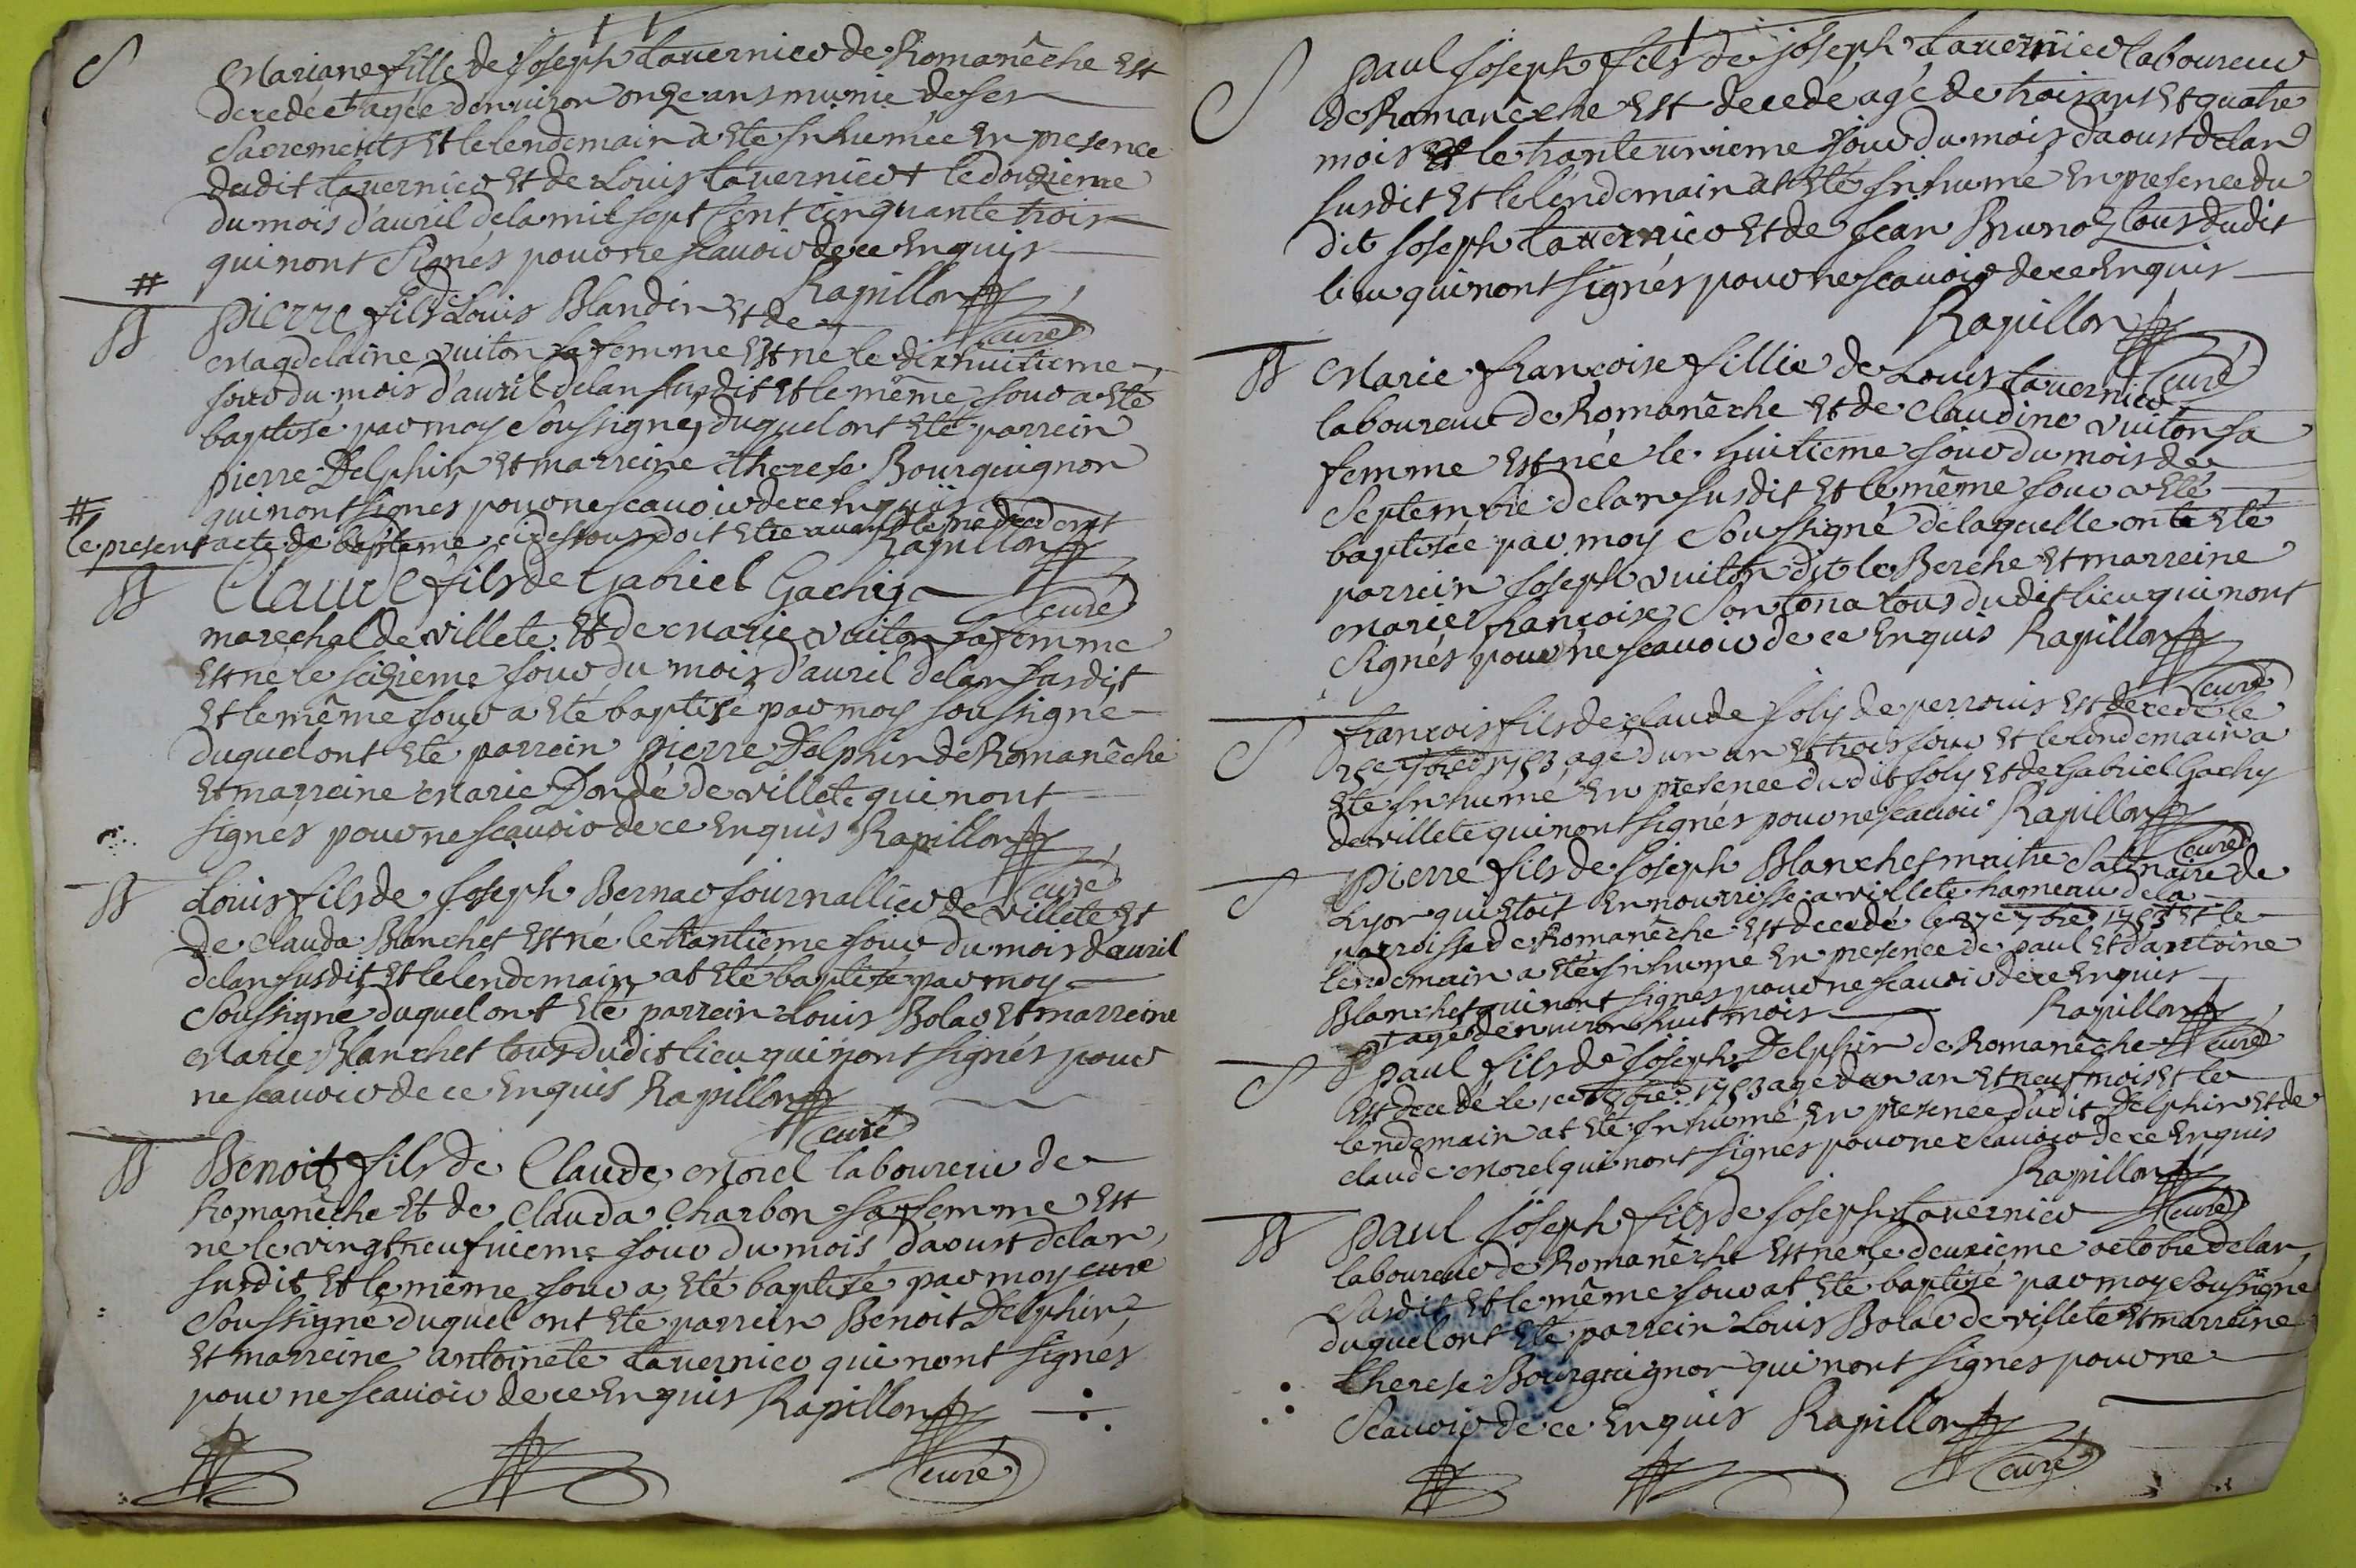 S
Mariane fille de Joseph Tavernier de Romanêche Est
decedée agée d'environ onze ans munie de ses
Sacrements Et le lendemain a Eté Inhumée En presence
dudit Tavernier Et de Louis Tavernier le douzieme
du mois d'avril de la mil sept sent cinquante trois
qui nont Signés pour ne scavoir de ce Enquis
Rapillon
curé
#
B
Pierre fils de Louis Blandin Et de
Magdelaine Vuiton sa femme Est né le dix huitieme
jour du mois d'avril de lan susdit Et le même Jour a Eté
baptisé par moy Soussigné, duquel ont Eté parrein
pierre Delphin Et marreine therese Bourguignon
qui nont signés pour ne scavoir de ce Enquis
#
le present acte de baptême cidessous doit Etre avant le precedent
Rapillon
curé
B
Claude fils de Gabriel Gachy
marechal de villete Et de Marie Vuiton sa femme
Est né le seizieme Jour du mois d'avril de lan susdit
Et le même Jour a Eté baptisé par moy soussigné
duquel ont Eté parrein pierre Delphin de Romanêche
Et marreine Marie Dondé de villete qui nont
signés pour ne scavoir de ce Enquis Rapillon
curé
B
Louis fils de Joseph Bernar Journallier de villete Et
de Clauda Blanchet Est né le trantieme Jour du mois d'avril
de lan susdit Et le lendemain at Eté baptisé par moy
Soussigné duquel ont Eté parrein Louis Bolar Et marreine
Marie Blanchet tous dudit lieu qui nont signés pour
ne scavoir de ce Enquis Rapillon
curé
B
Benoit fils de Claude Morel laboureur de
Romanêche Et de Clauda Charbon sa femme Est
né le vingt neufvieme Jour du mois daoust de lan
susdit Et le même Jour a Eté baptisé par moy curé
Soussigné duquel ont Eté parrein Benoit Delphin
Et marreine antoinete Tavernier qui nont signés
pour ne scavoir de ce Enquis Rapillon
curé
S
paul Joseph fils de Joseph Tavernier laboureur
de Romanêche Est decedé agé de trois ans Et quatre
mois le trante unieme Jour du mois d'aoust de lan
susdit Et le lendemain at Eté Inhumé En presence du
dit Joseph Tavernier Et de Jean Brunoz tous dudit
lieu qui nont signés pour ne scavoir de ce Enquis
Rapillon
curé
B
Marie françoise fillie de Louis Tavernier
laboureur de Romanêche Et de Claudine Vuiton sa
femme Est née le huitieme Jour du mois de
Septembre de lan susdit Et le même Jour a Eté
baptisée par moy Soussigné de laquelle ont Eté
parrein Joseph Vuiton dit le Berche Et marreine
Marie françoise Sontona tous dudit lieu qui nont
Signés pour ne scavoir de ce Enquis Rapillon
curé
S
françois fils de Claude Joly de perrouis Est decedé le
25e 7bre 1753 agé d'un an Et trois Jour Et le lendemain a
Eté Inhumé En presence dudit Joly Et de Gabriel Gachy
de villete qui nont signés pour ne scavoir Rapillon
curé
S
Pierre fils de Joseph Blanchet maitre Satinaire de
Lyon qui Etoit En nourrisse a villete hameau de la
parroisse de Romanêche Est decedé le 27e 7bre 1753 Et le
lendemain a Eté Inhumé En presence de paul Et d'antoine
Blanchet qui nont signés pour ne scavoir de ce Enquis
agé d'environ huit mois
Rapillon
curé
S
paul fils de Joseph Delphin de Romanêche
Est decedé le 1er 8bre 1753 agé d'un an Et neuf mois Et le
lendemain at Eté Inhumé En presence dudit Delphin Et de
Claude Morel qui nont signés pour ne scavoir de ce Enquis
Rapillon
curé
B
Paul Joseph fils de Joseph Tavernier
laboureur de Romanêche Est né le deuxieme octobre de lan
Susdit Et le même Jour at Eté baptisé par moy Soussigné
duquel ont Eté parrein Louis Bolar de villete Et marreine
therese Bourguignon qui nont signés pour ne
Scavoir de ce Enquis Rapillon
curé